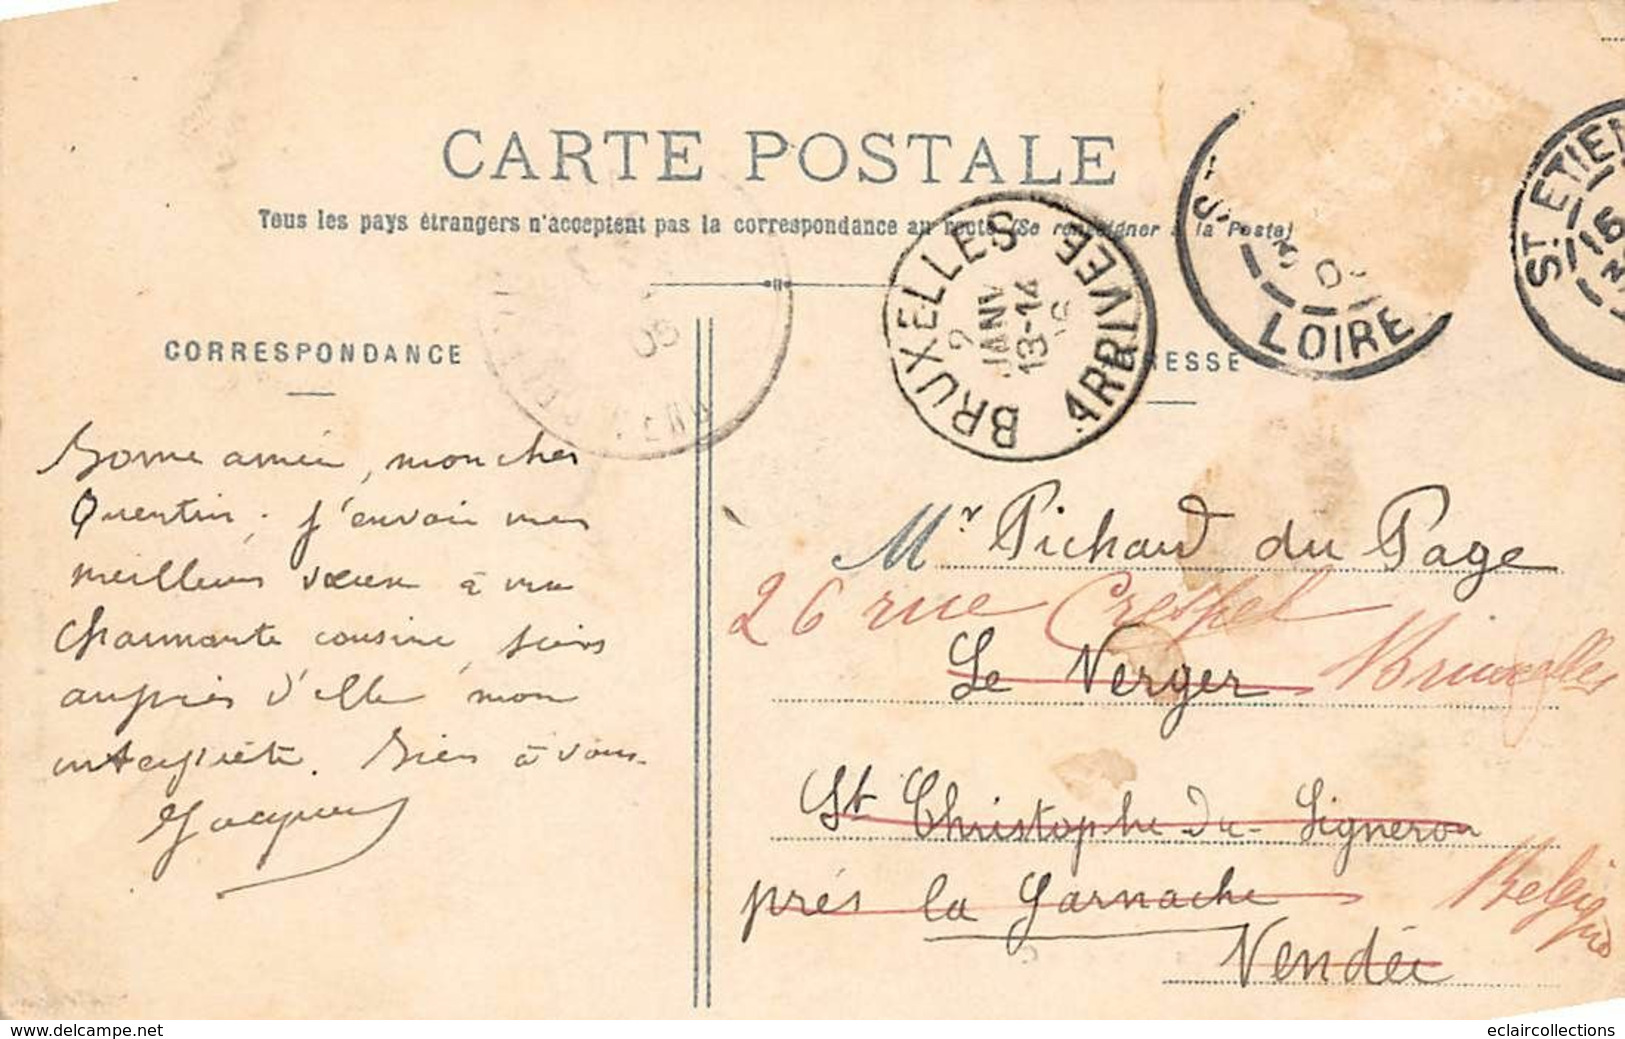 CARTE POSTALE
Tous les pays étrangers n'acceptent pas la correspondance au recto (Se renseigner à la Poste)
BRUXELLES ARRIVÉE
2
JANV
13-14
LOIRE
ST ETIEN
15
05
CORRESPONDANCE
RESSE
Bonne année, mon cher
Quentin, j'envoie mes
meilleurs vœux à une
charmante cousine, sois
auprès d'elle mon
interprète. Bien à vous.
Jacques
Mr Pichard du Page
26 rue Crespel
Le Verger Bruxelles
St Christophe-du-Ligneron
près la Garnache Belgique
Vendée
www.delcampe.net
eclaircollections